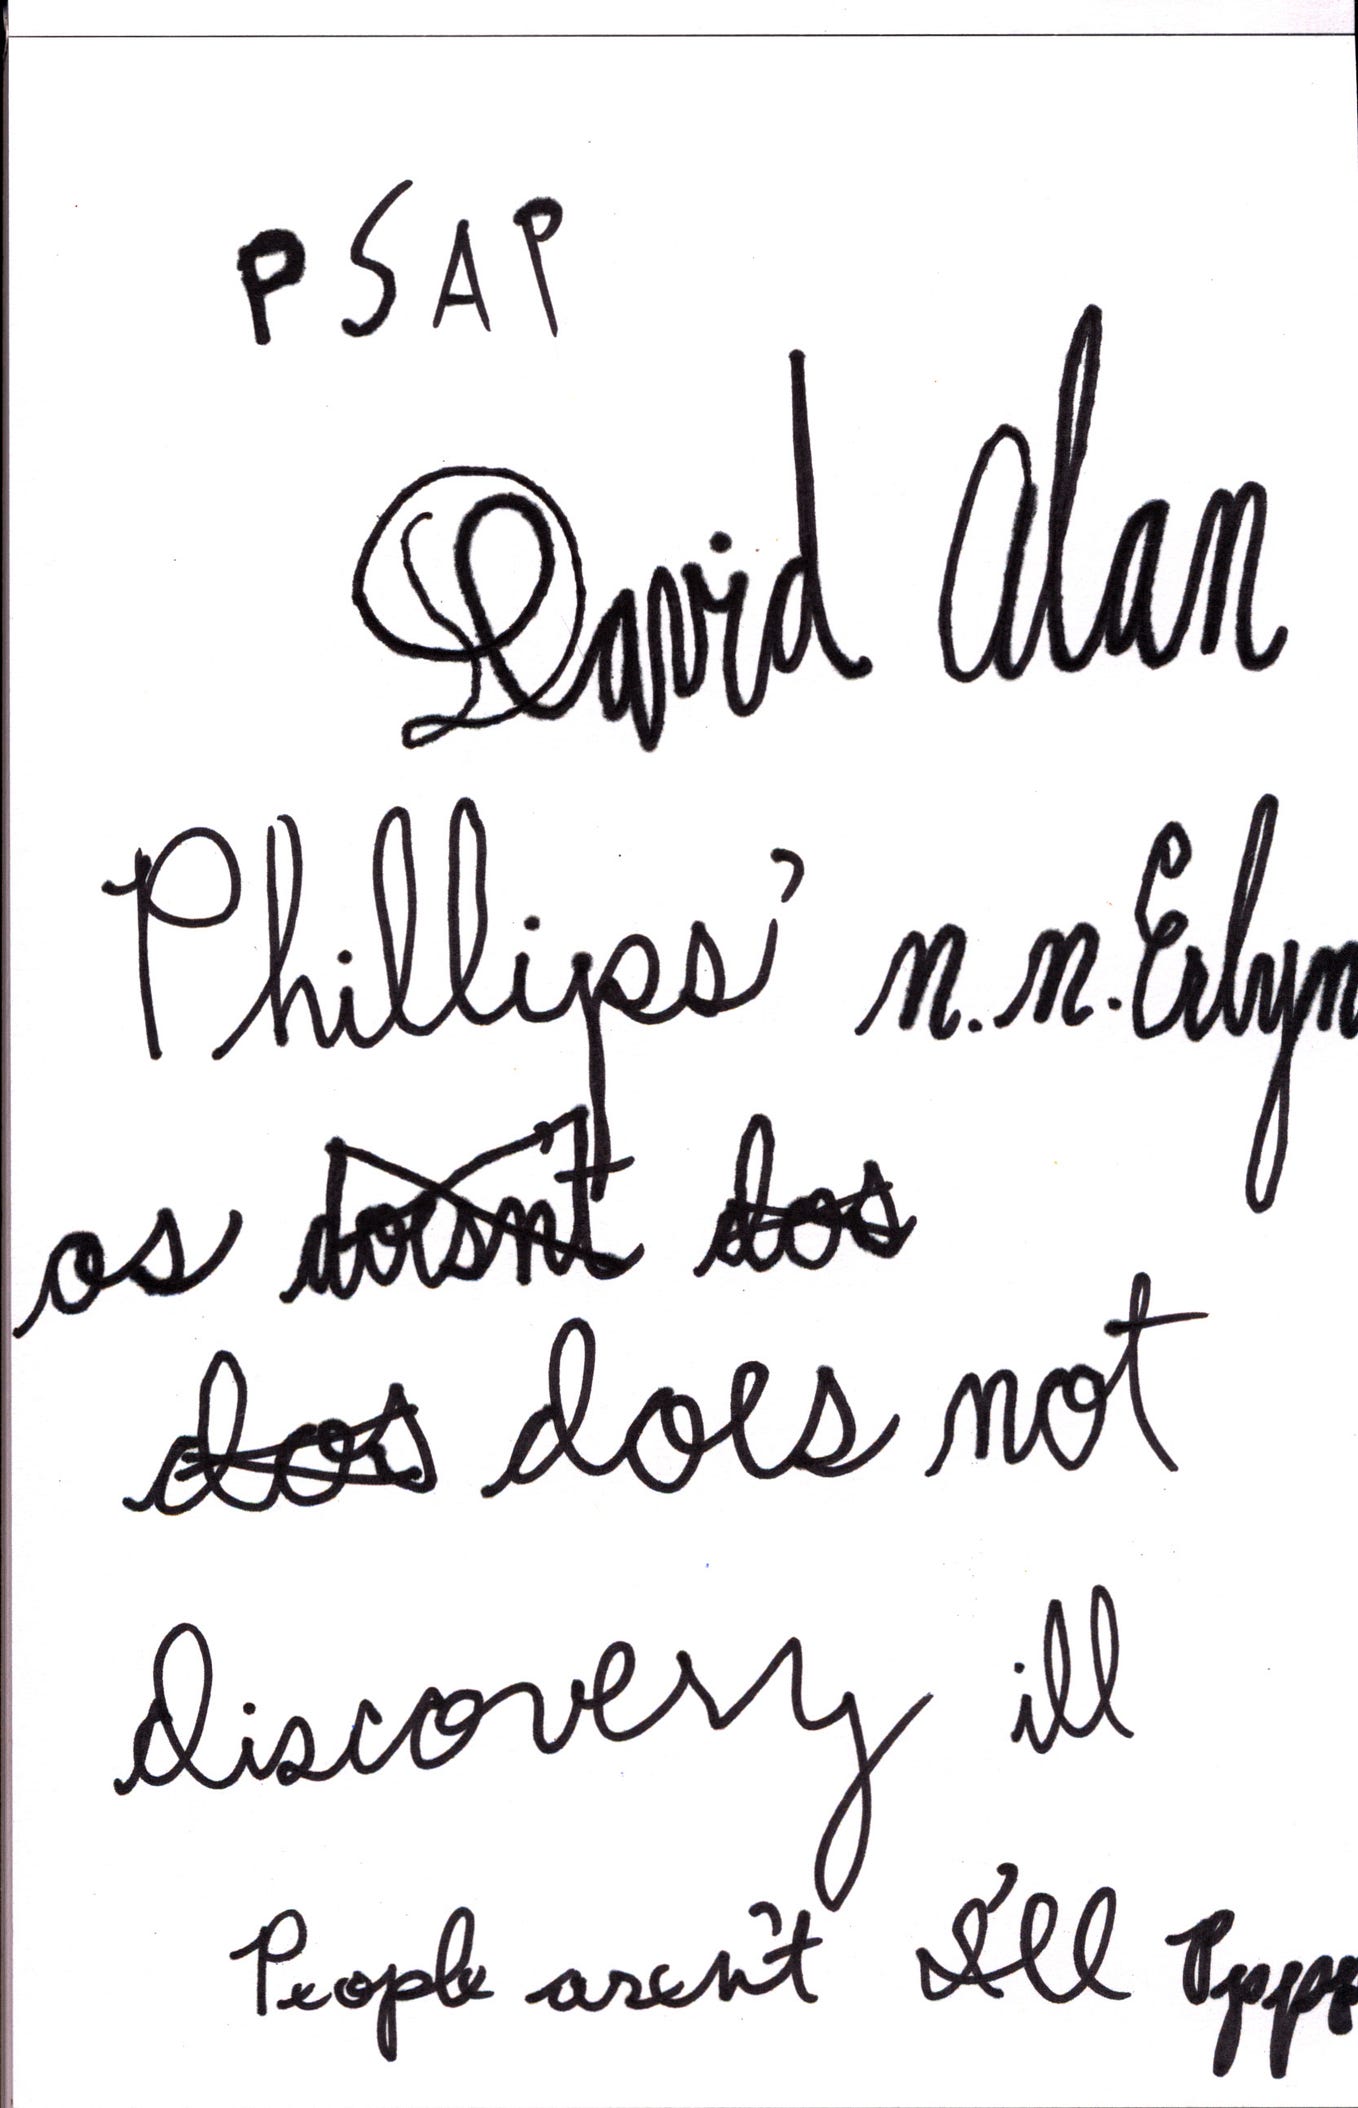 PSAP
David Alan
Phillips' n.n. Erlyn
os doesn't dos
dos does not
discovery ill
People aren't I'll